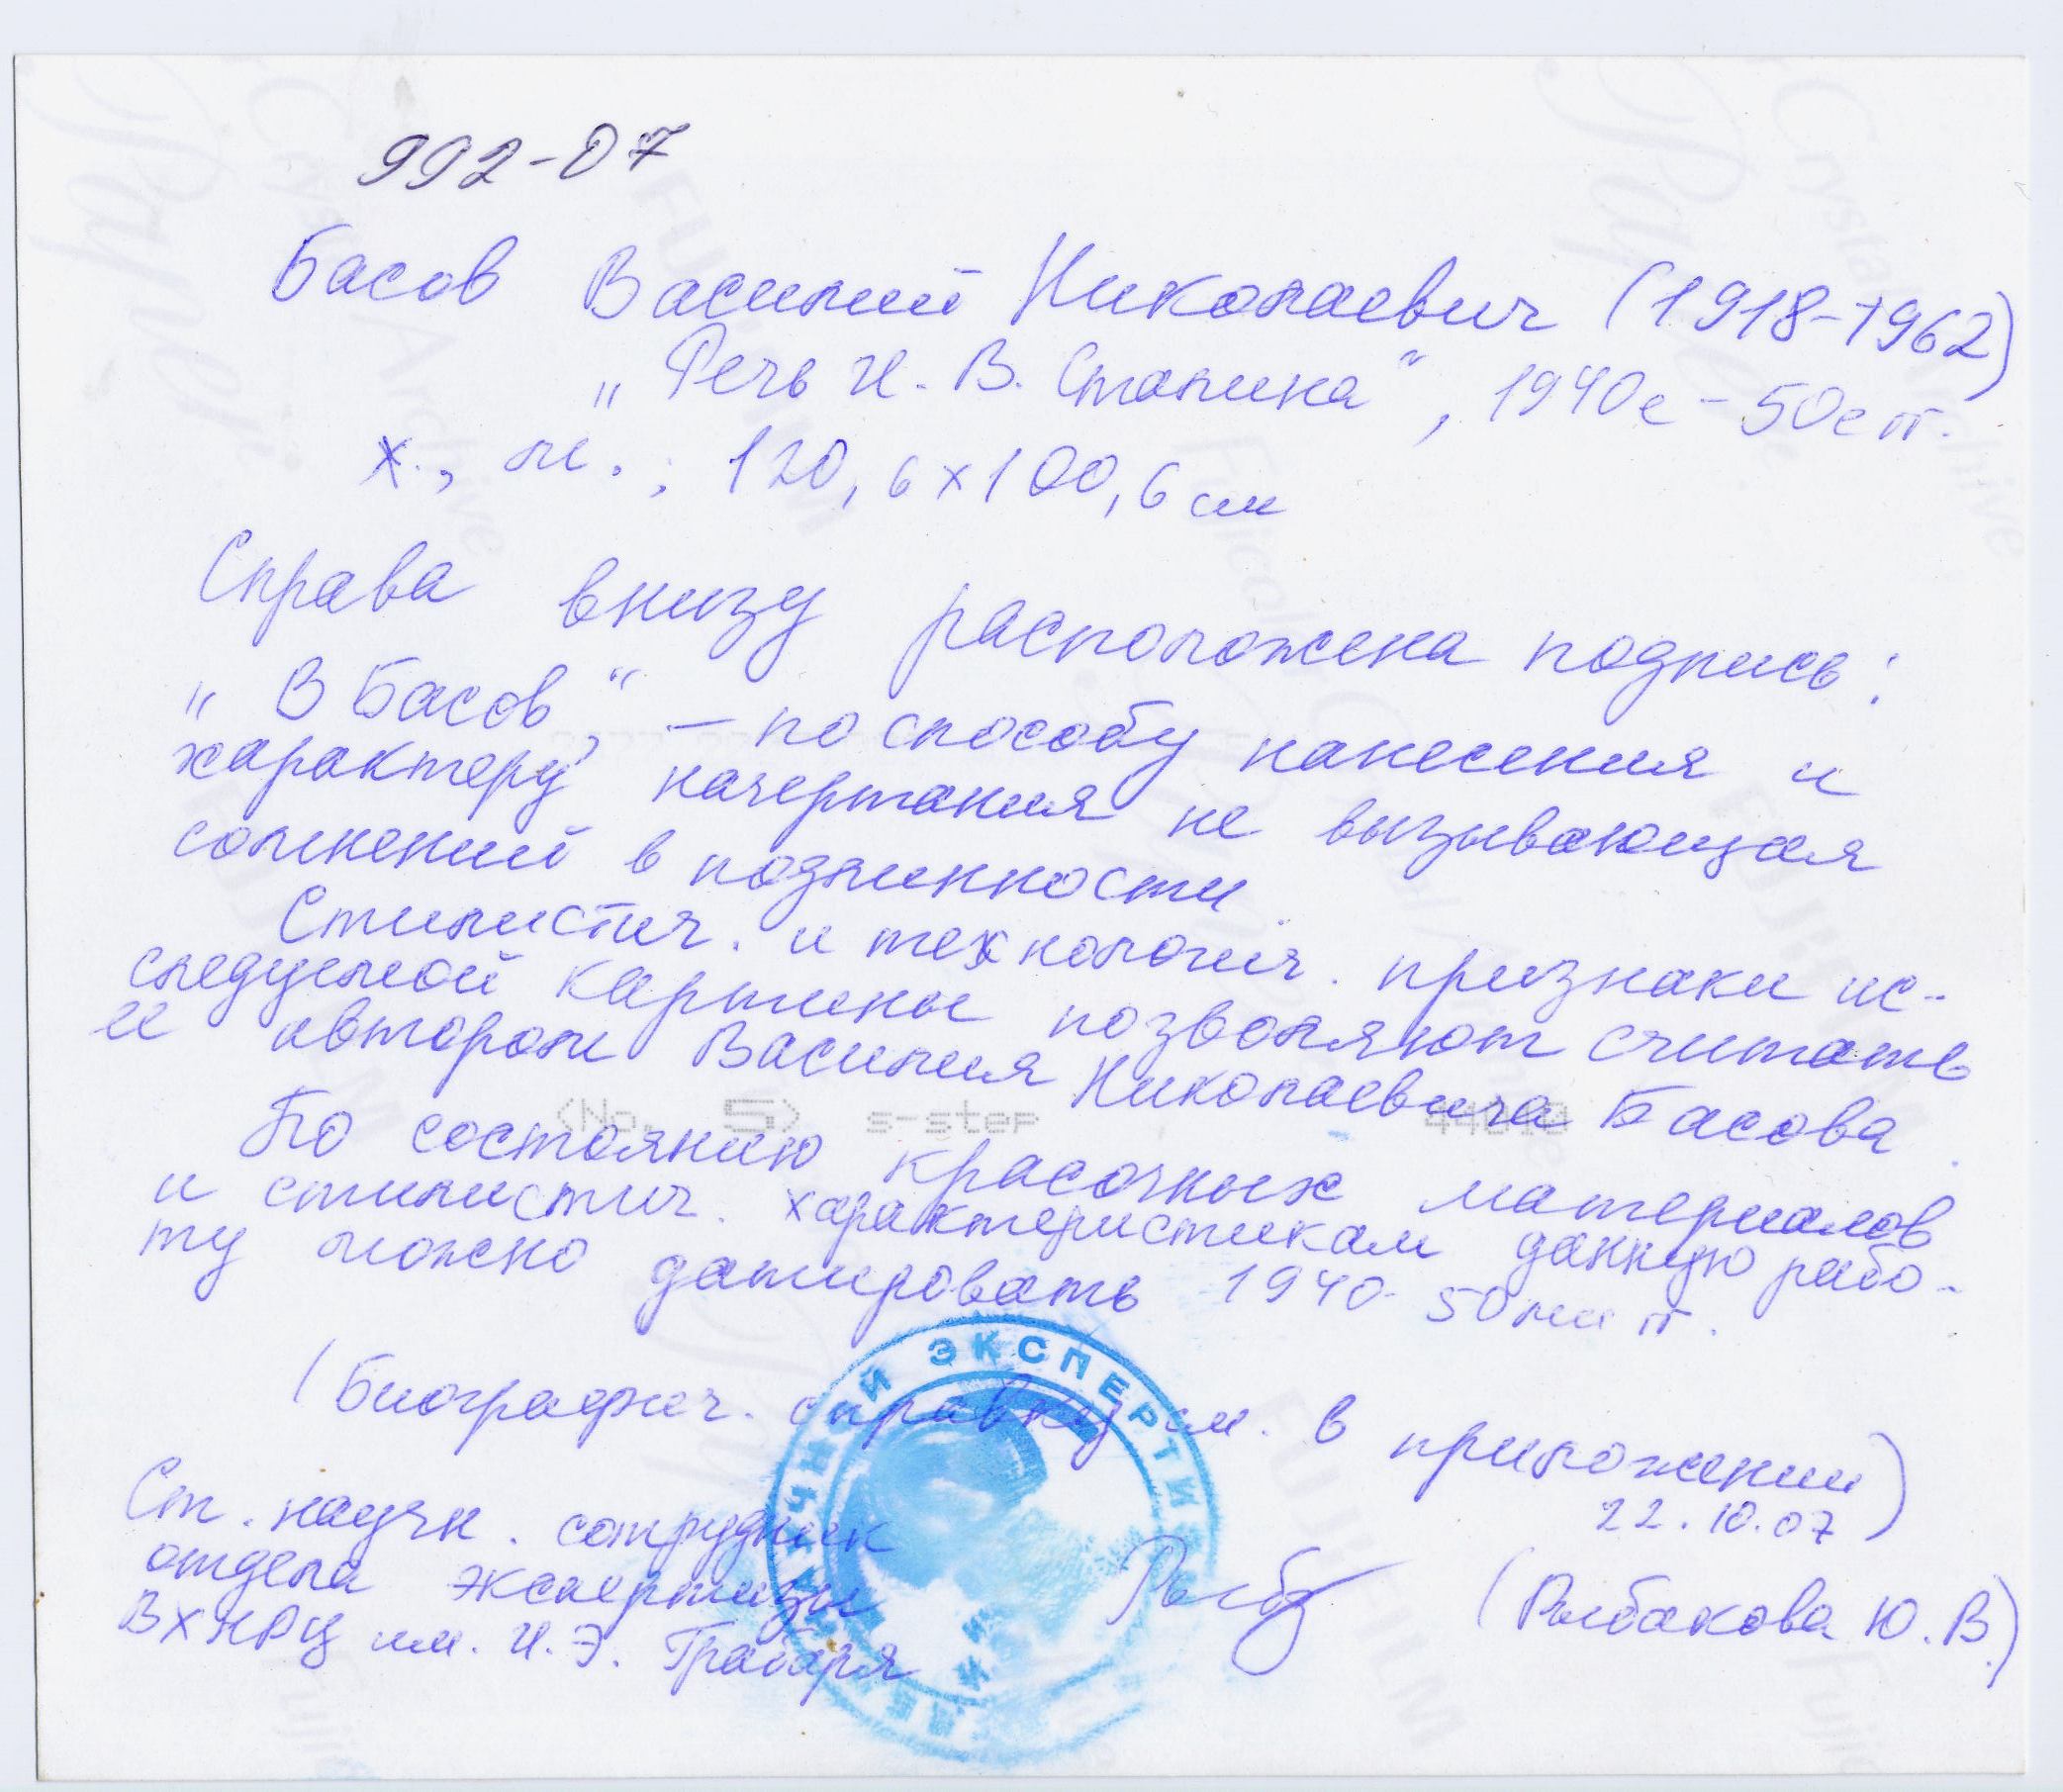 992-07
Басов Василий Николаевич (1918-1962)
„Речь И. В. Сталина“, 1940е-50е гг.
х., м.; 120,6х100,6 см
Справа внизу расположена подпись:
„В Басов“, – по способу нанесения и
характеру начертания не вызывающая
сомнений в подлинности.
Стилистич. и технологич. признаки ис-
следуемой картины позволяют считать
ее автором Василия Николаевича Басова.
(No. 5) s-step
По состоянию красочных материалов
и стилистич. характеристикам данную рабо-
ту можно датировать 1940-50ми гг.
(Биографич. справку см. в приложении)
22.10.07
Ст. научн. сотрудник
отдела экспертизы
ВХНРЦ им. И.Э. Грабаря
(Рыбакова Ю.В.)
ЭКСПЕРТИ